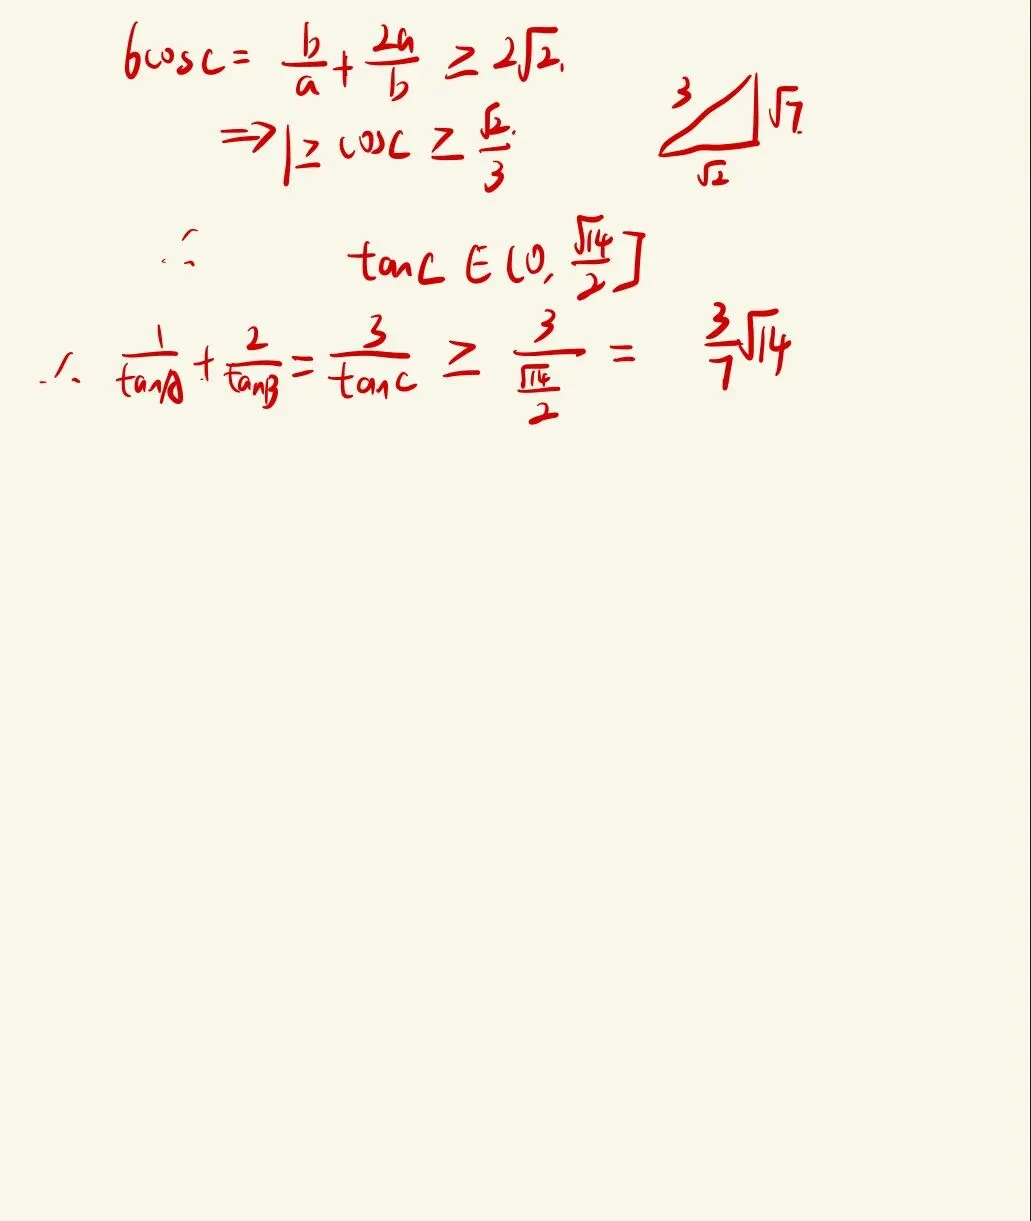 6cosC = b/a + 2a/b ≥ 2√2.
⇒ 1 ≥ cosC ≥ √2/3
3 √7 √2
∴ tanC ∈ (0, √14/2]
∴ 1/tanA + 2/tanB = 3/tanC ≥ 3/(√14/2) = 3/7 √14